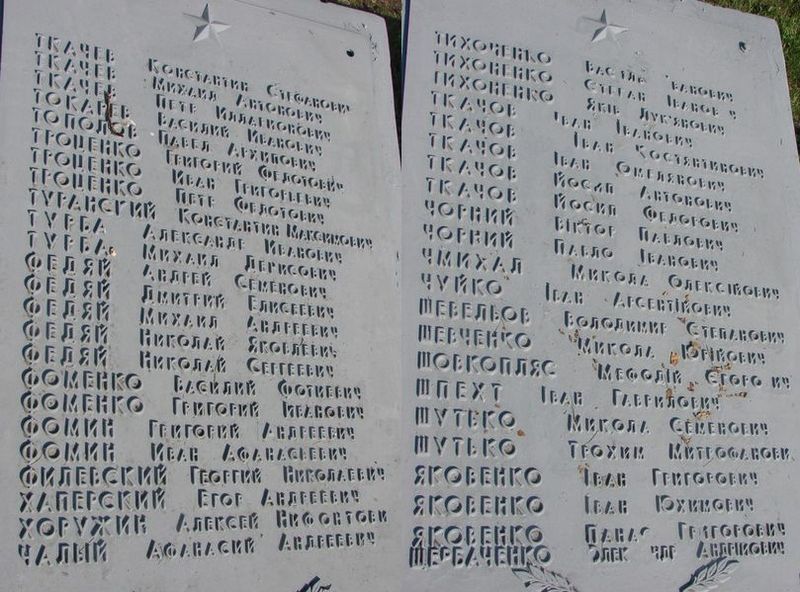 ТКАЧЕВ КОНСТАНТИН СТЕФАНОВИЧ
ТКАЧЕВ МИХАИЛ АНТОНОВИЧ
ТКАЧЕВ ПЕТР ИЛЛАРИОНОВИЧ
ТОКАРЕВ ВАСИЛИЙ ИВАНОВИЧ
ТОПОЛОВ ПАВЕЛ АРХИПОВИЧ
ТРОЦЕНКО ГРИГОРИЙ ФЕДОТОВИЧ
ТРОЦЕНКО ИВАН ГРИГОРЬЕВИЧ
ТРОЦЕНКО ПЕТР ФЕДОТОВИЧ
ТУРАНСКИЙ КОНСТАНТИН МАКСИМОВИЧ
ТУРБА АЛЕКСАНДР ИВАНОВИЧ
ТУРБА МИХАИЛ ДЕНИСОВИЧ
ФЕДЯЙ АНДРЕЙ СЕМЕНОВИЧ
ФЕДЯЙ ДМИТРИЙ ЕЛИСЕЕВИЧ
ФЕДЯЙ МИХАИЛ АНДРЕЕВИЧ
ФЕДЯЙ НИКОЛАЙ ЯКОВЛЕВИЧ
ФЕДЯЙ НИКОЛАЙ СЕРГЕЕВИЧ
ФОМЕНКО ВАСИЛИЙ ФОТИЕВИЧ
ФОМЕНКО ГРИГОРИЙ ИВАНОВИЧ
ФОМИН ГРИГОРИЙ АНДРЕЕВИЧ
ФОМИН ИВАН АФАНАСЬЕВИЧ
ФИЛЕВСКИЙ ГЕОРГИЙ НИКОЛАЕВИЧ
ХАПЕРСКИЙ ЕГОР АНДРЕЕВИЧ
ХОРУЖИН АЛЕКСЕЙ НИФОНТОВИ
ЧАЛЫЙ АФАНАСИЙ АНДРЕЕВИЧ
ТИХОНЕНКО ВАСИЛЬ ВАНОВИЧ
ТИХОНЕНКО СТЕПАН ІВАНОВ Ч
ТИХОНЕНКО ЯКІВ ЛУК'ЯНОВИЧ
ТКАЧОВ ІВАН ІВАНОВИЧ
ТКАЧОВ ІВАН КОСТЯНТИНОВИЧ
ТКАЧОВ ІВАН ОМЕЛЯНОВИЧ
ТКАЧОВ ЙОСИП АНТОНОВИЧ
ТКАЧОВ ЙОСИП ФЕДОРОВИЧ
ЧОРНИЙ ВІКТОР ПАВЛОВИЧ
ЧОРНИЙ ПАВЛО ІВАНОВИЧ
ЧМИХАЛ МИКОЛА ОЛЕКСІЙОВИЧ
ЧУЙКО ІВАН АРСЕНТІЙОВИЧ
ШЕВЕЛЬОВ ВОЛОДИМИР СТЕПАНОВИЧ
ШЕВЧЕНКО МИКОЛА ЮРІЙОВИЧ
ШОВКОПЛЯС МЕФОДІЙ ЄГОРО ИЧ
ШПЕХТ ІВАН ГАВРИЛОВИЧ
ШУТЬКО МИКОЛА СЕМЕНОВИЧ
ШУТЬКО ТРОХИМ МИТРОФАНОВИ
ЯКОВЕНКО ІВАН ГРИГОРОВИЧ
ЯКОВЕНКО ІВАН ЮХИМОВИЧ
ЯКОВЕНКО ПАНАС ГРИГОРОВИЧ
ЩЕРБАЧЕНКО ОЛЕК НДР АНДРІЙОВИЧ